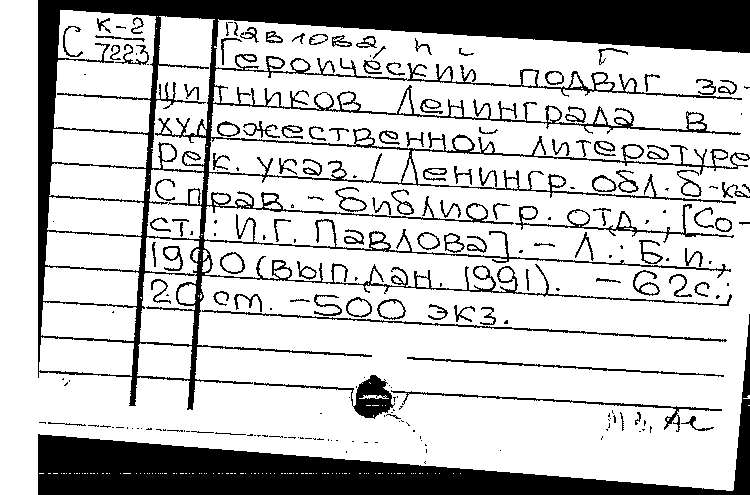 С К-2
7223
Павлова, И Г
Героический подвиг за-
щитников Ленинграда в
художественной литературе
Рек. указ. / Ленингр. обл. б-ка
Справ. - библиогр. отд.; [Со-
ст.: И.Г. Павлова]. - Л.: Б.и.,
1990 (вып. дан. 1991). - 62с.;
20 cm. - 500 экз.